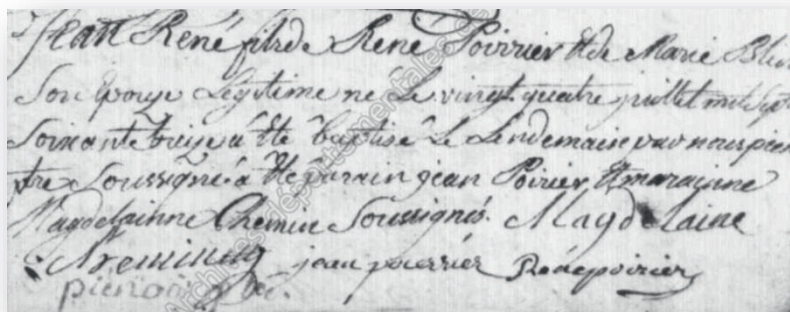 Jean René fils de René Poirrier et de Marie
Son epouse Légitime né Le vingt quatre juillet mil Sept
Soixante treize a été baptisé Le Lendemain par nous
tre Soussigné a été parain jean Poirier et marainne
Magdelainne Chemin Soussignés. Magdelaine
jean poirrier René poirier
Archives départementales de